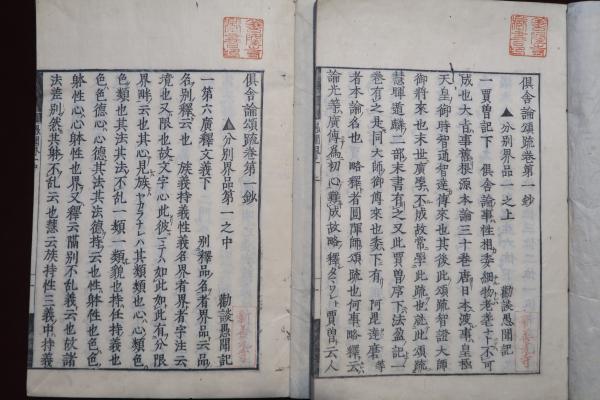 倶舎論頌疏卷第一鈔
▲分別界品一之上
勸談愚聞記
一賈曽記下 倶舎論事性相委細物
成也大音事舊根源本論三十卷唐日本渡事皇極
天皇御時智通智達傳來也其後此頌疏智證大師
御將來也末世廣學不成故常學此疏也就此頌疏
慧暉遁麟二部末書有之又此賈曽序下法盈記一
卷有之是同大師御傳來也委下有 阿毘達磨
者本論名也 略釋者圓暉師頌疏也何事略釋云
論光等廣博爲初心難成故略釋 賈曽云人
倶舎論頌疏卷第一鈔
▲分別界品第一之中
勸談愚聞記
一第六廣釋文義下 別釋品名者界品云品
名別釋云也 族義持義性義名界者界字注云
境也又限也故文字心此彼如此如此有分限
界畔云也其心見族 ハ其類類也心心類色
色類也其法其法不乱一類一類貌也持任持義也
色色德心心德其法其法德持云也性躰性也色色
躰性心心躰性也界又釋云隔別不乱義云也故諸
法差別然其躰不乱云也慧云族持性三義中持義